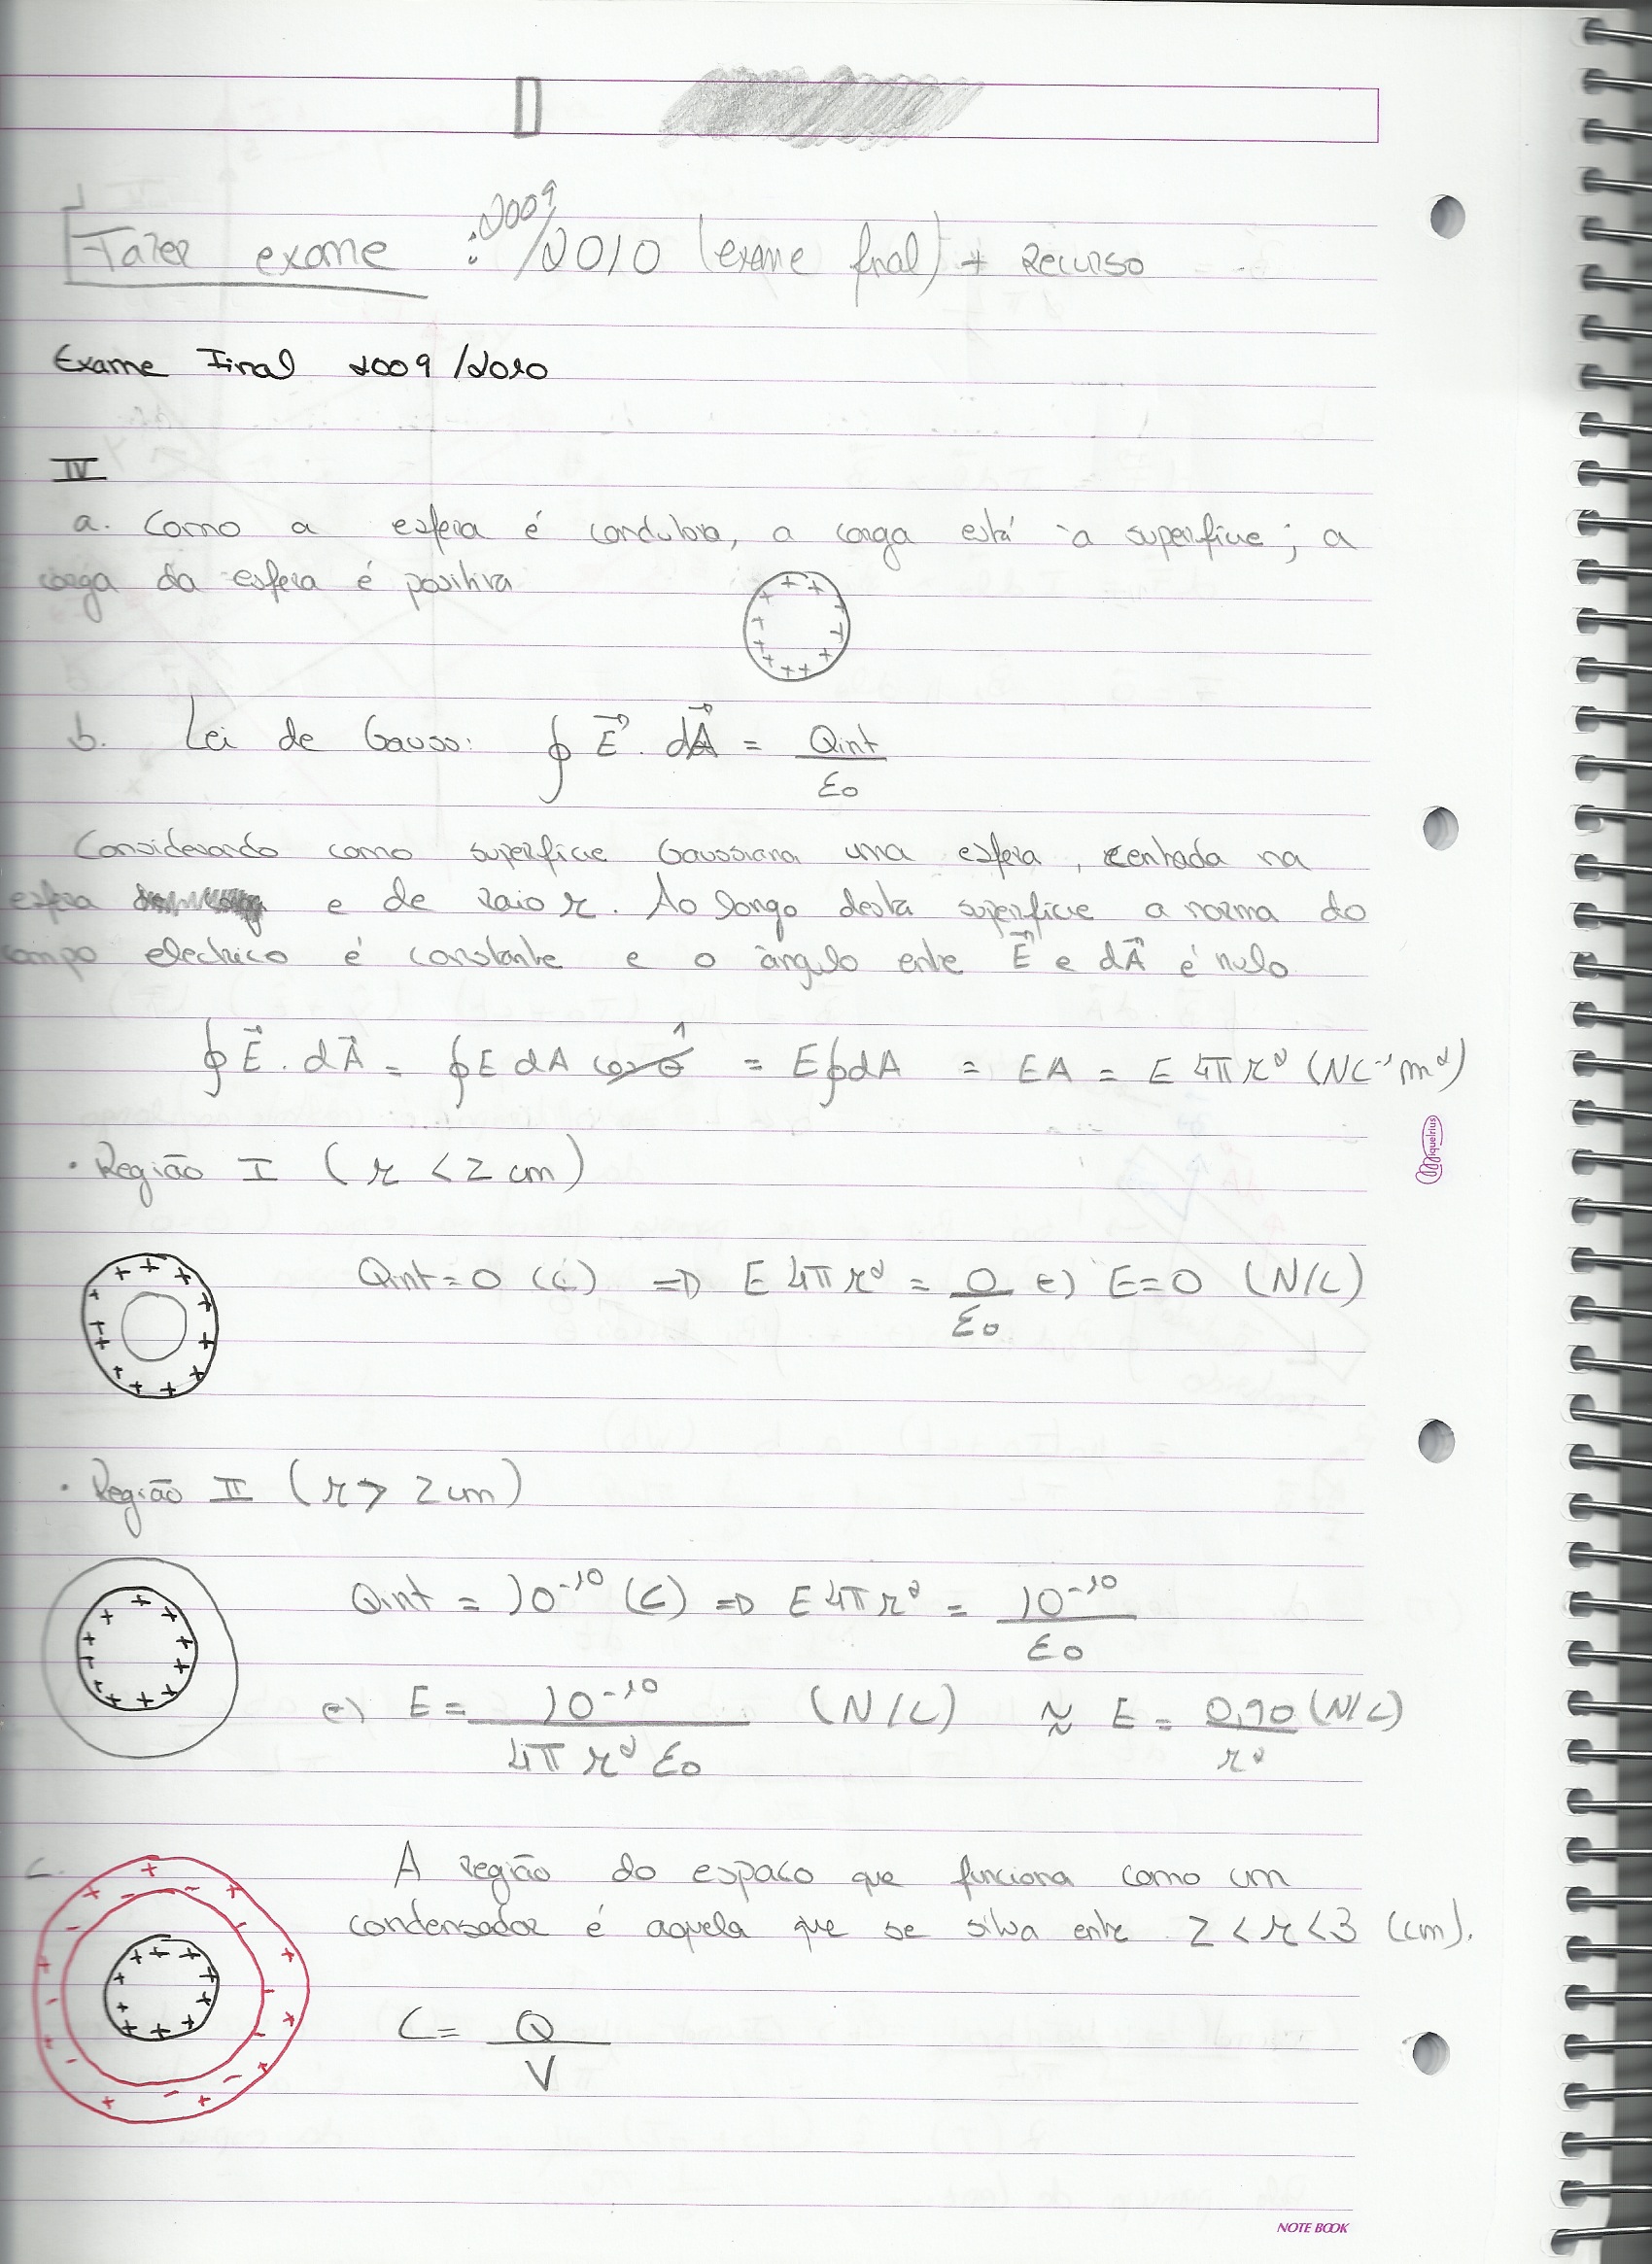 Fazer exame : 2009/2010 (exame final) + Recurso
Exame Final 2009/2010
IV
a. Como a esfera é condutora, a carga está à superfície; a
carga da esfera é positiva
+ + + + + + + + + + + + +
b. Lei de Gauss: ∮ E⃗ . dA⃗ = Qint / ε0
Considerando como superfície Gaussiana uma esfera, centrada na
esfera e de raio r. Ao longo desta superfície a norma do
campo electrico é constante e o ângulo entre E⃗ e dA⃗ é nulo
∮ E⃗ . dA⃗ = ∮ E dA cos θ 1 = E ∮ dA = EA = E 4π r² (NC⁻¹m²)
• Região I (r < 2 cm)
Qint = 0 (C) => E 4π r² = 0 / ε0 (=) E = 0 (N/C)
• Região II (r > 2 cm)
Qint = 10⁻¹⁰ (C) => E 4π r² = 10⁻¹⁰ / ε0
(=) E = 10⁻¹⁰ / 4π r² ε0 (N/C) ≈ E = 0,90 / r² (N/C)
c. A região do espaço que funciona como um
condensador é aquela que se situa entre 2 < r < 3 (cm).
C = Q / V
Miquelrius
NOTE BOOK